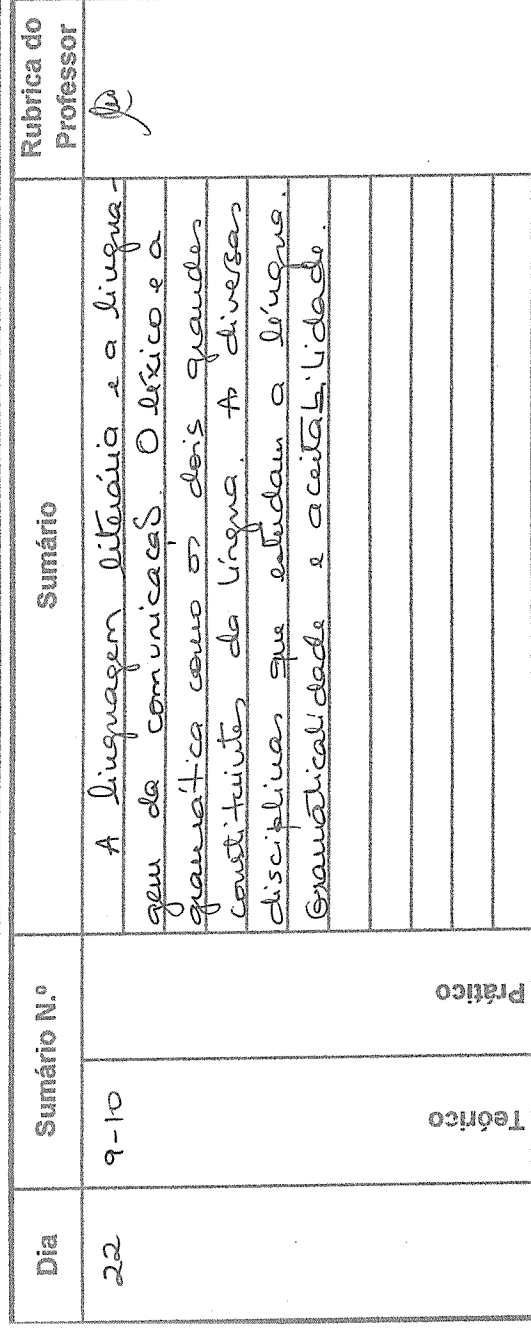 Dia
Sumário N.º
Sumário
Rubrica do
Professor
22
9-10
A linguagem literária e a lingua-
gem da comunicação. O léxico e a
gramática como os dois grandes
constituintes da língua. As diversas
disciplinas que estudam a língua.
Gramaticalidade e aceitabilidade.
Teórico
Prático